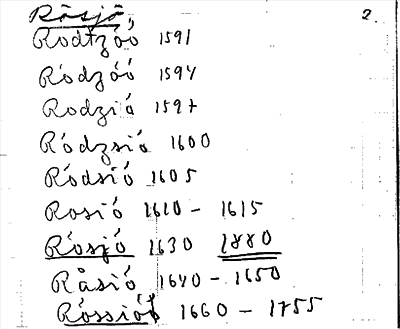 Råsjö, 2.
Rodtzóó 1591
Ródzóó 1594
Rodzió 1597
Ródzsió 1600
Ródsió 1605
Rosió 1610 - 1615
Rósjó 1630 1880
Råsió 1640 - 1650
Róssióó 1660 - 1755